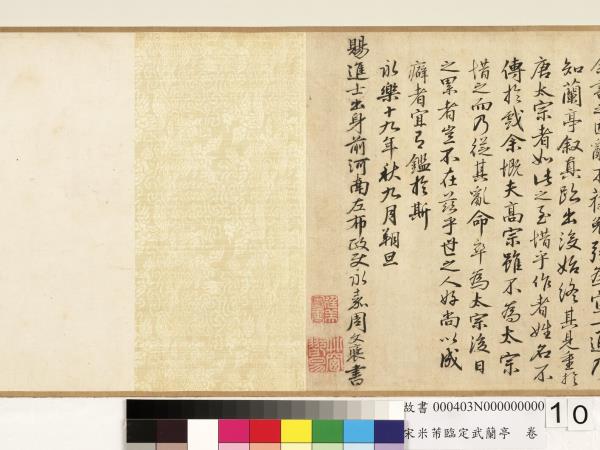 知蘭亭叙真跡出後始終其見重於
唐太宗者如此之至惜乎作者姓名不
傳於哉余慨夫高宗雖不為太宗
惜之而乃從其亂命卒為太宗後日
之累者豈不在茲乎世之人好尚以成
癖者宜有鑑於斯
永樂十九年秋九月朔旦
賜進士出身前河南左布政史永嘉周文褒書
故書 000403N000000000
宋米芾臨定武蘭亭 卷
10